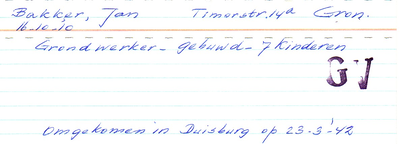 Bakker, Jan Timorstr. 14a Gron.
16-10-10
Grondwerker - gehuwd - 7 Kinderen
GV
Omgekomen in Duisburg op 23-3-'42